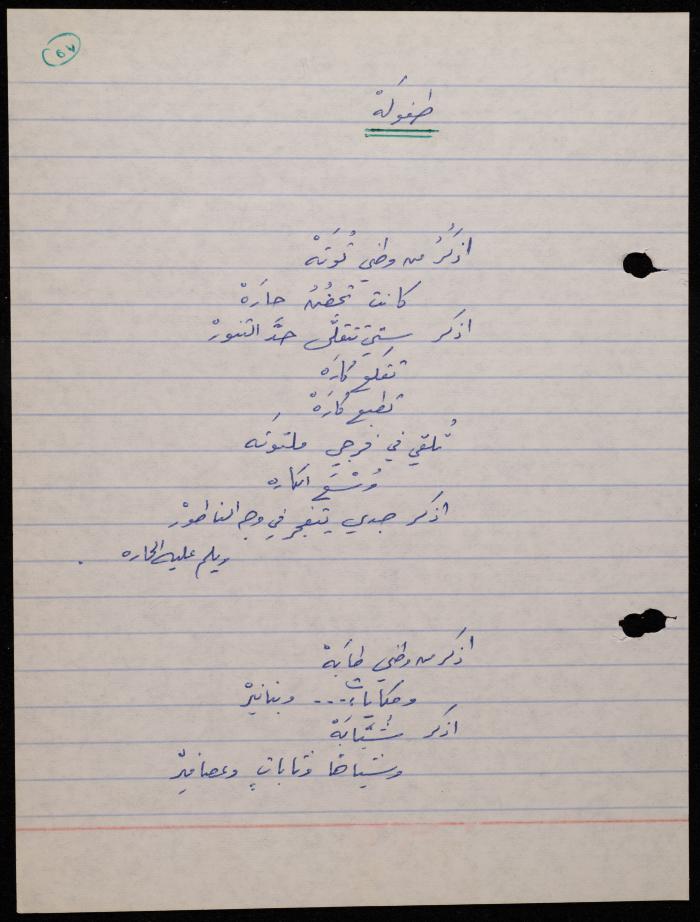 ٧٩
طفولَةْ
اذكُرُ من وطني تُوتَةْ
كانت تحضُنُ حارَةْ
اذكر ستي تتقلَّى حدَّ التنورْ
تقلع كارَه
تطبع كارَةْ
تُلقي في فرحي ملتوتَه
وُسْعَ الكاره
اذكر جدي يتفجر في وجه الناطورْ
ويلم عليه الحاره .
اذكر من وطني طابَةْ
وحكاياتٌ ... وبنانيرْ
اذكر شُبَّابَةْ
وشياها وعصافيرْ